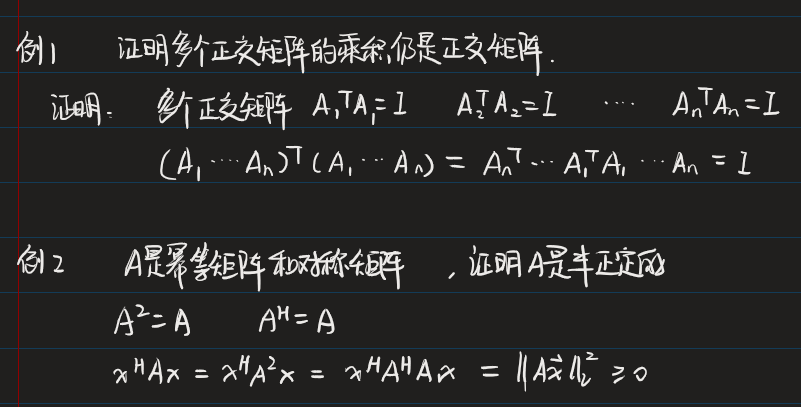 例1 证明多个正交矩阵的乘积仍是正交矩阵.
证明: 多个正交矩阵 A₁ᵀA₁=I A₂ᵀA₂=I ⋯ AₙᵀAₙ=I
(A₁⋯Aₙ)ᵀ(A₁⋯Aₙ) = Aₙᵀ⋯A₁ᵀA₁⋯Aₙ = I
例2 A是幂等矩阵和对称矩阵 ,证明A是半正定的
A²=A Aᴴ=A
xᴴAx = xᴴA²x = xᴴAᴴAx = ‖Ax⃗‖₂² ≥0